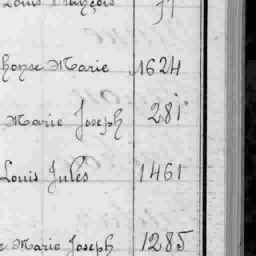 Louis François 71
phonse Marie 1624
Marie Joseph 281
Louis Jules 1461
Marie Joseph 1285